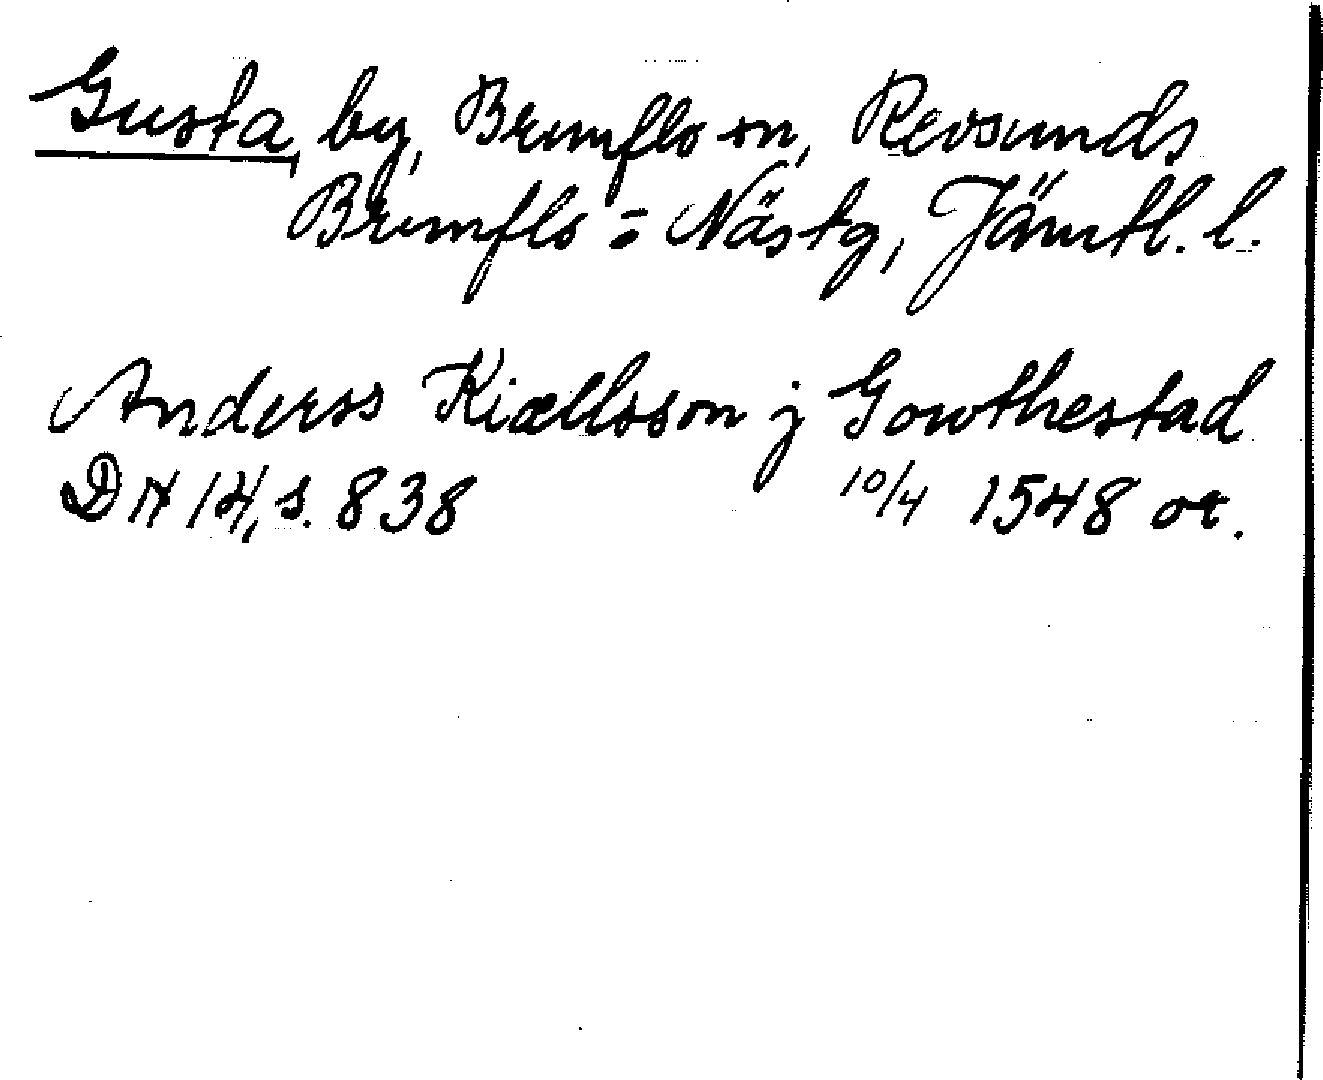 Gusta, by, Brunflo sn, Revsunds
Brunflo = Nästg, Jämtl. l.
Anderss Kiællsson j Gowthestad
DN 14, s. 838 10/4 1548 or.